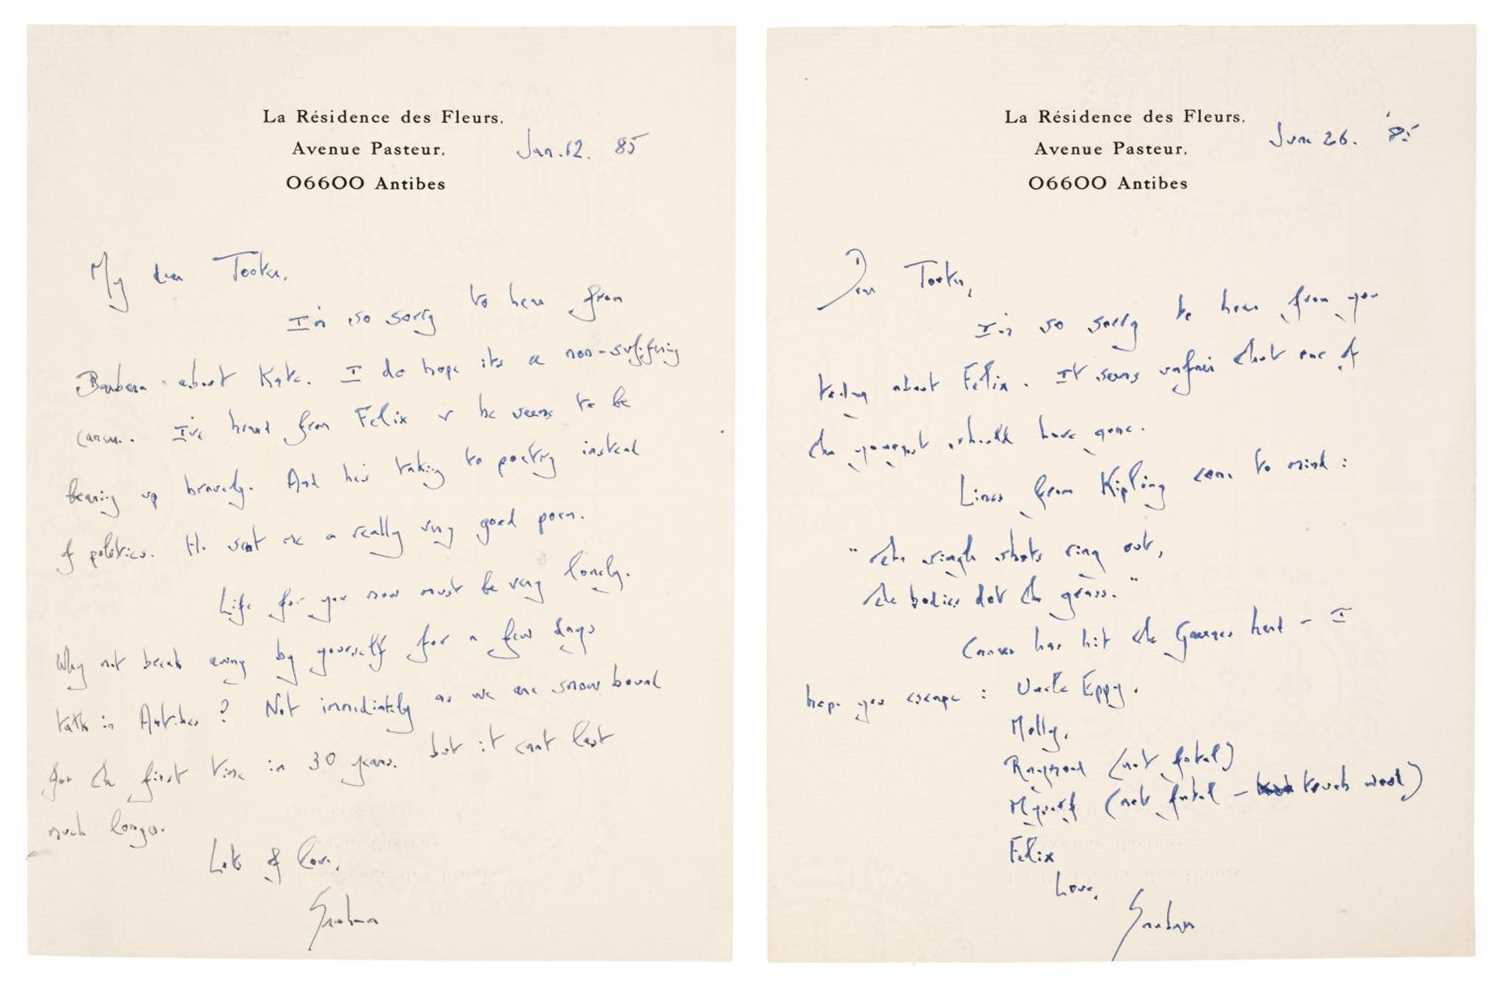 La Résidence des Fleurs.
Avenue Pasteur.
06600 Antibes
Jan. 12. 85
My dear Tooter,
I'm so sorry to hear from
Barbara about Kate. I do hope its a non-suffering
cancer. I've heard from Felix & he seems to be
bearing up bravely. And he's taking to poetry instead
of politics. He sent me a really very good poem.
Life for you now must be very lonely.
Why not break away by yourself for a few days
in Antibes? Not immediately as we are snow bound
for the first time in 30 years. but it cant last
much longer.
Lots of love,
Graham
La Résidence des Fleurs.
Avenue Pasteur.
06600 Antibes
June 26. '85
Dear Tooter,
I'm so sorry to hear from you
today about Felix. It seems unfair that one of
the youngest should have gone.
Lines from Kipling come to mind:
"The single shots ring out,
The bodies dot the grass."
Cancer has hit the Greenes hard - I
hope you escape: Uncle Eppy.
Molly.
Raymond (not fatal)
Myself (not fatal - touch wood)
Felix
Love,
Graham